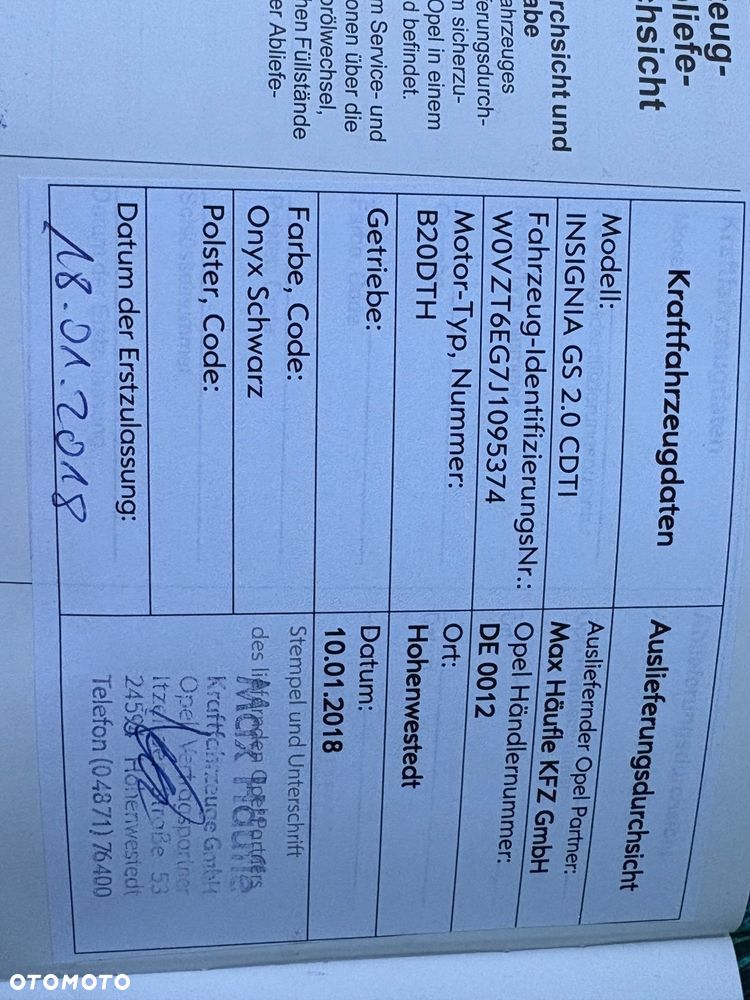 eug-
liefe-
hsicht
rchsicht und
abe
ahrzeuges
ferungsdurch-
m sicherzu-
Opel in einem
d befindet.
m Service- und
onen über die
rölwechsel,
hen Füllstände
er Abliefe-
Kraftfahrzeugdaten
Modell:
INSIGNIA GS 2.0 CDTI
Fahrzeug-IdentifizierungsNr.:
W0VZT6EG7J1095374
Motor-Typ, Nummer:
B20DTH
Getriebe:
Farbe, Code:
Onyx Schwarz
Polster, Code:
Datum der Erstzulassung:
18.01.2018
Auslieferungsdurchsicht
Ausliefernder Opel Partner:
Max Häufle KFZ GmbH
Opel Händlernummer:
DE 0012
Ort:
Hohenwestedt
Datum:
10.01.2018
Stempel und Unterschrift
des liefernden Opel Partners
Max Häufle
Kraftfahrzeuge GmbH
Opel Vertragspartner
53
Hohenwestedt
Telefon (04871) 76400
OTOMOTO